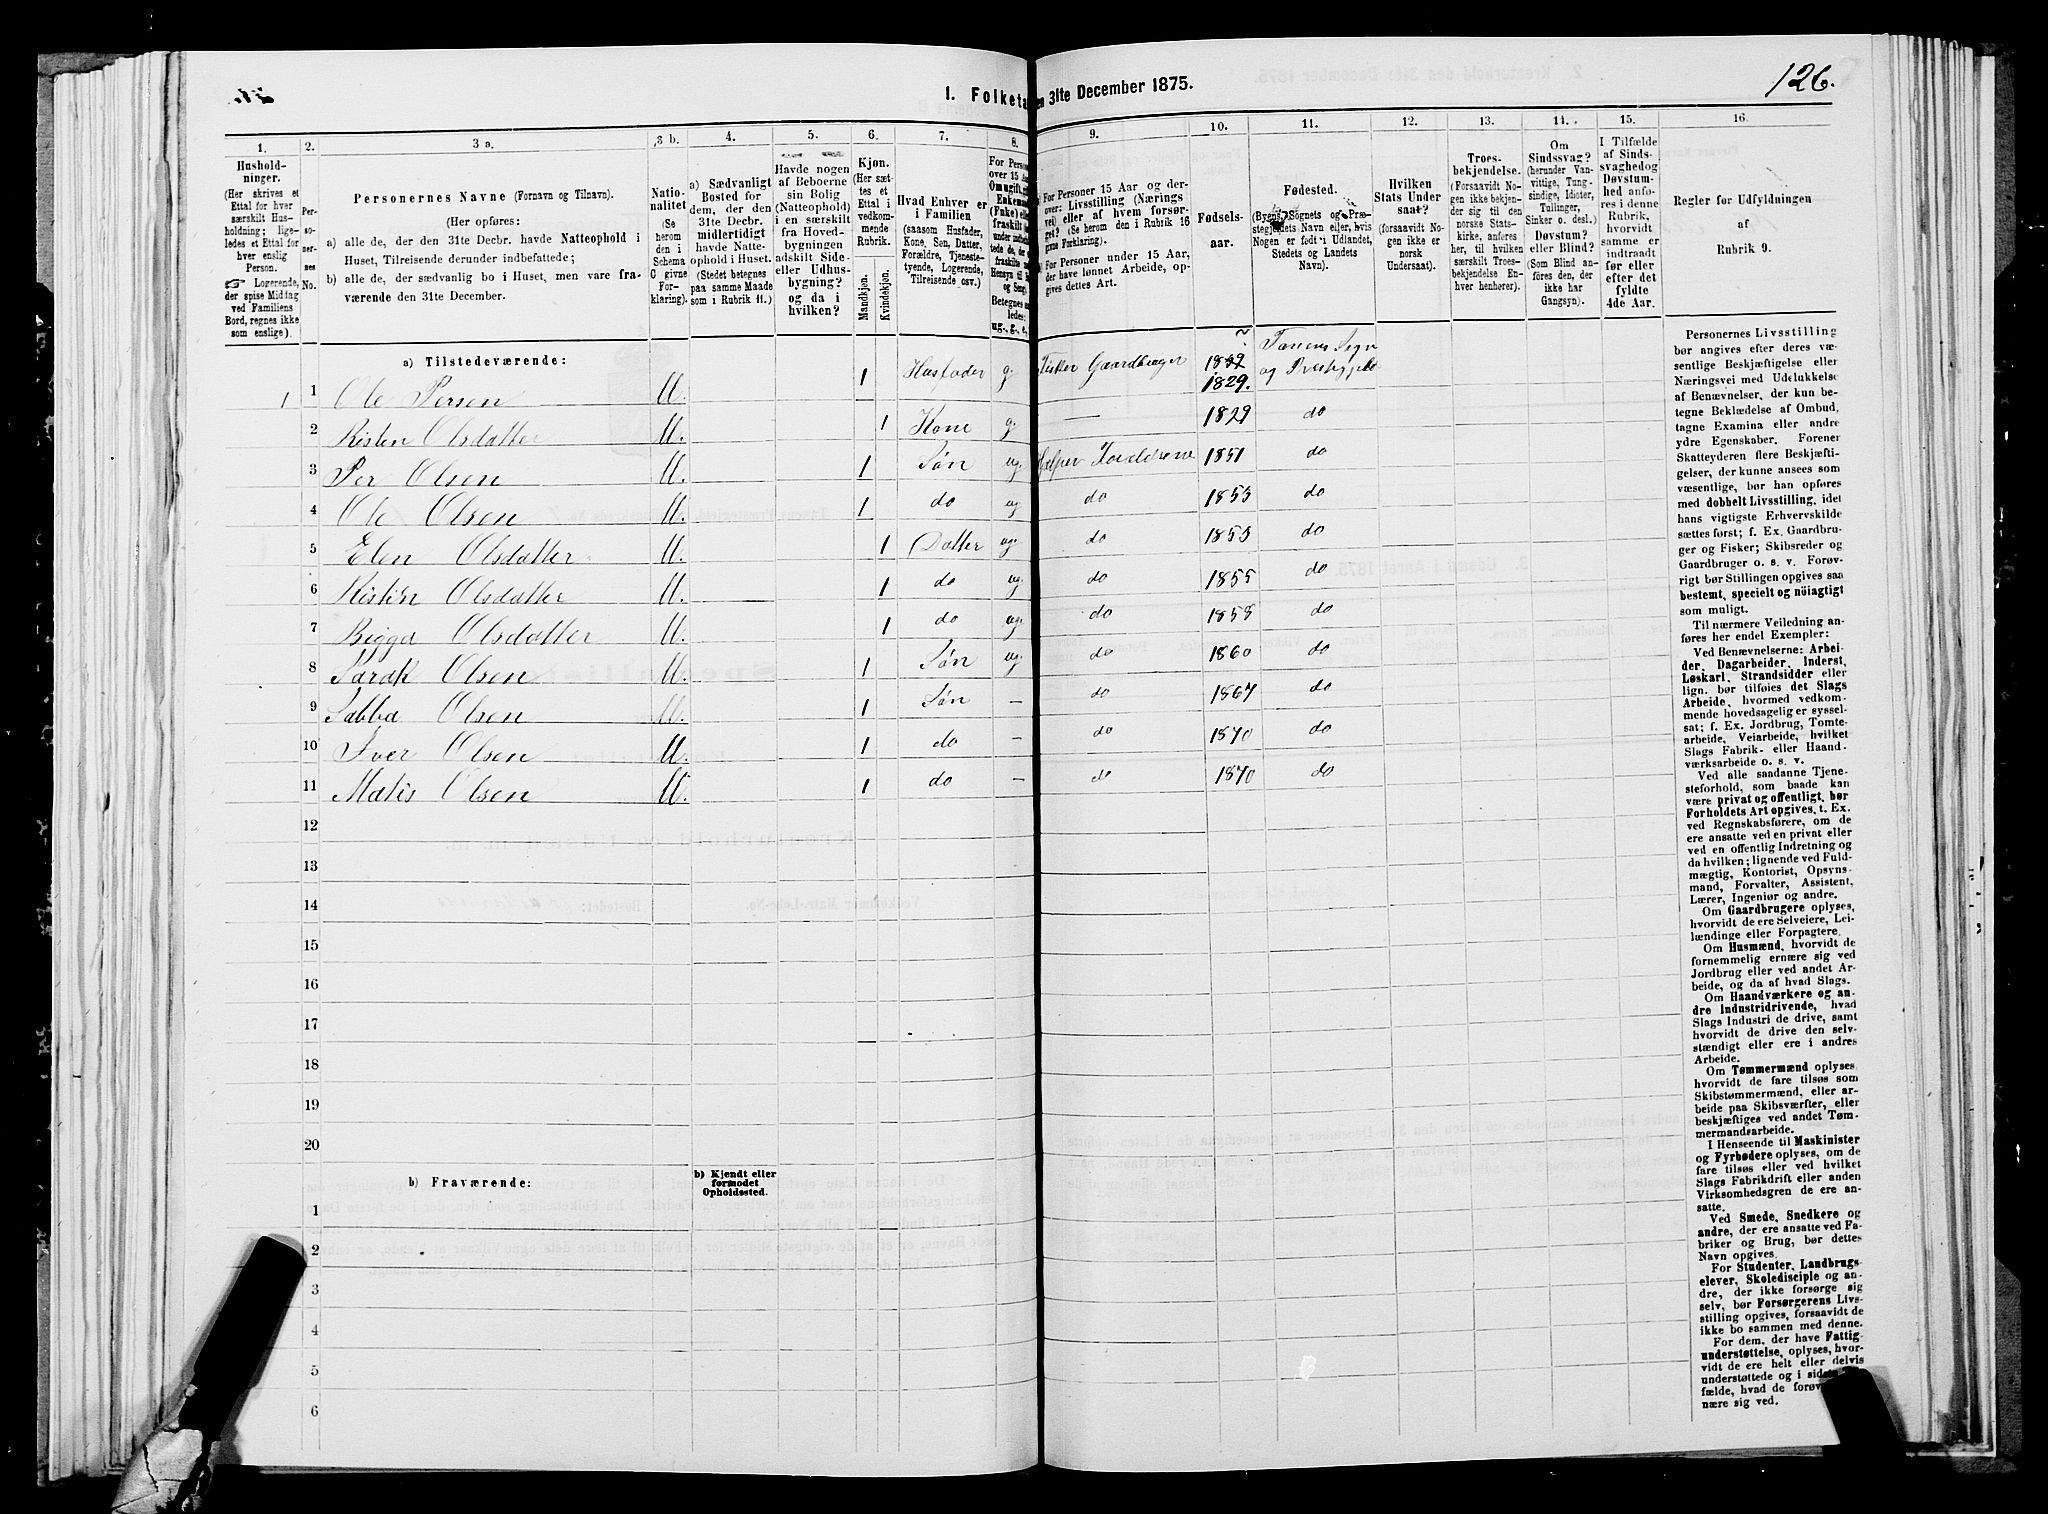 I. Folketa
en 31te December 1875.
126.
1. 2. 3 a. 3 b. 4. 5. 6. 7. 8. 9. 10. 11. 12. 13. 14. 15. 16.
Hushold-
ninger.
(Her skrives et
Ettal for hver
særskilt Hus-
holdning; lige-
ledes et Ettal for
hver enslig
Person.
☞ Logerende,
der spise Middag
ved Familiens
Bord, regnes ikke
som enslige).
Per-
so-
ner-
nes
No.
Personernes Navne (Fornavn og Tilnavn).
(Her opføres:
a) alle de, der den 31te Decbr. havde Natteophold i
Huset, Tilreisende derunder indbefattede;
b) alle de, der sædvanlig bo i Huset, men vare fra-
værende den 31te December.
Natio-
nalitet
(Se
herom
den i
Schema
C givne
For-
klaring).
a) Sædvanligt
Bosted for
dem, der den
31te Decbr.
midlertidigt
havde Natte-
ophold i Huset.
(Stedet betegnes
paa samme Maade
som i Rubrik 11.)
Havde nogen
af Beboerne
sin Bolig
(Natteophold)
i en særskilt
fra Hoved-
bygningen
adskilt Side-
eller Udhus-
bygning?
og da i
hvilken?
Kjøn.
(Her sæt-
tes et
Ettal i
vedkom-
mende
Rubrik.
Mandkjøn.
Kvindekjøn.
Hvad Enhver er
i Familien
(saasom Husfader,
Kone, Søn, Datter,
Forældre, Tjeneste-
tyende, Logerende,
Tilreisende osv.)
For Personer 15 Aar og der-
over: Livsstilling (Nærings-
vei) eller af hvem forsør-
get? (Se herom den i Rubrik 16
givne Forklaring).
For Personer under 15 Aar,
der have lønnet Arbeide, op-
gives dettes Art.
Fødsels-
aar.
Fødested.
(Byens, Sognets og Præ-
stegjeldets Navn eller, hvis
Nogen er født i Udlandet,
Stedets og Landets
Navn).
Hvilken
Stats Under-
saat?
(forsaavidt No-
gen ikke er
norsk
Undersaat).
Troes-
bekjendelse.
(Forsaavidt No-
gen ikke bekjen-
der sig til den
norske Stats-
kirke, anføres
her, til hvilken
særskilt Troes-
bekjendelse En-
hver henhører).
Om
Sindssvag?
(herunder Van-
vittige, Tung-
sindige, Idioter,
Tullinger,
Sinker o. desl.)
Døvstum?
eller Blind?
(Som Blind an-
føres den, der
ikke har
Gangsyn).
I Tilfælde
af Sinds-
svaghed og
Døvstum-
hed anfø-
res i denne
Rubrik,
hvorvidt
samme er
indtraadt
før eller
efter det
fyldte
4de Aar.
Regler for Udfyldningen
af
Rubrik 9.
a) Tilstedeværende:
1 1 Ole Persen 1 Husfader g. Fisker Gaardbruger 1832 1829. Tanens Sogn og Prestegjeld
2 Kisten Olsdatter 1 Kone g. — 1829 do
3 Per Olsen 1 Søn ug. Hjelper Foreldrene 1851 do
4 Ole Olsen 1 do ug do 1853 do
5 Elen Olsdatter 1 Datter ug. do 1853 do
6 Kisten Olsdatter 1 do ug. do 1855 do
7 Bigga Olsdatter 1 do ug. do 1858 do
8 Sarak Olsen 1 Søn ug. do 1860 do
9 Sabba Olsen 1 Søn — do 1867 do
10 Iver Olsen 1 do — do 1870 do
11 Matis Olsen 1 do — do 1870 do
12
13
14
15
16
17
18
19
20
b) Fraværende:
b) Kjendt eller
formodet
Opholdssted.
1
2
3
4
5
6
Personernes Livsstilling
bør angives efter deres væ-
sentlige Beskjæftigelse eller
Næringsvei med Udelukkelse
af Benævnelser, der kun be-
tegne Beklædelse af Ombud,
tagne Examina eller andre
ydre Egenskaber. Forener
Skatteyderen flere Beskjæfti-
gelser, der kunne ansees som
væsentlige, bør han opføres
med dobbelt Livsstilling, idet
hans vigtigste Erhvervskilde
sættes først; f. Ex. Gaardbru-
ger og Fisker; Skibsreder og
Gaardbruger o. s. v. Forøv-
rigt bør Stillingen opgives saa
bestemt, specielt og nöiagtigt
som muligt.
Til nærmere Veiledning an-
føres her endel Exempler:
Ved Benævnelserne: Arbei-
der, Dagarbeider, Inderst,
Løskarl, Strandsidder eller
lign. bør tilføies det Slags
Arbeide, hvormed vedkom-
mende hovedsagelig er syssel-
sat; f. Ex. Jordbrug, Tomte-
arbeide, Veiarbeide, hvilket
Slags Fabrik- eller Haand-
værksarbeide o. s. v.
Ved alle saadanne Tjene-
steforhold, som baade kan
være privat og offentligt, bør
Forholdets Art opgives, t. Ex.
ved Regnskabsførere, om de
ere ansatte ved en privat eller
ved en offentlig Indretning og
da hvilken; lignende ved Fuld-
mægtig, Kontorist, Opsyns-
mand, Forvalter, Assistent,
Lærer, Ingeniør og andre.
Om Gaardbrugere oplyses,
hvorvidt de ere Selveiere, Lei-
lændinge eller Forpagtere.
Om Husmænd, hvorvidt de
fornemmelig ernære sig ved
Jordbrug eller ved andet Ar-
beide, og da af hvad Slags.
Om Haandværkere og an-
dre Industridrivende, hvad
Slags Industri de drive, samt
hvorvidt de drive den selv-
stændigt eller ere i andres
Arbeide.
Om Tømmermænd oplyses,
hvorvidt de fare tilsøs som
Skibstømmermænd, eller ar-
beide paa Skibsværfter, eller
beskjæftiges ved andet Tøm-
mermandsarbeide.
I Henseende til Maskinister
og Fyrbødere oplyses, om de
fare tilsøs eller ved hvilket
Slags Fabrikdrift eller anden
Virksomhedsgren de ere an-
satte.
Ved Smede, Snedkere og
andre, der ere ansatte ved Fa-
briker og Brug, bør dettes
Navn opgives.
For Studenter, Landbrugs-
elever, Skoledisciple og an-
dre, der ikke forsørge sig
selv, bør Forsørgerens Livs-
stilling opgives, forsaavidt de
ikke bo sammen med denne.
For dem, der have Fattig-
understøttelse, oplyses, hvor-
vidt de ere helt eller delvis
understøttede og i sidste
fælde, hvad de forøv
nære sig ved.